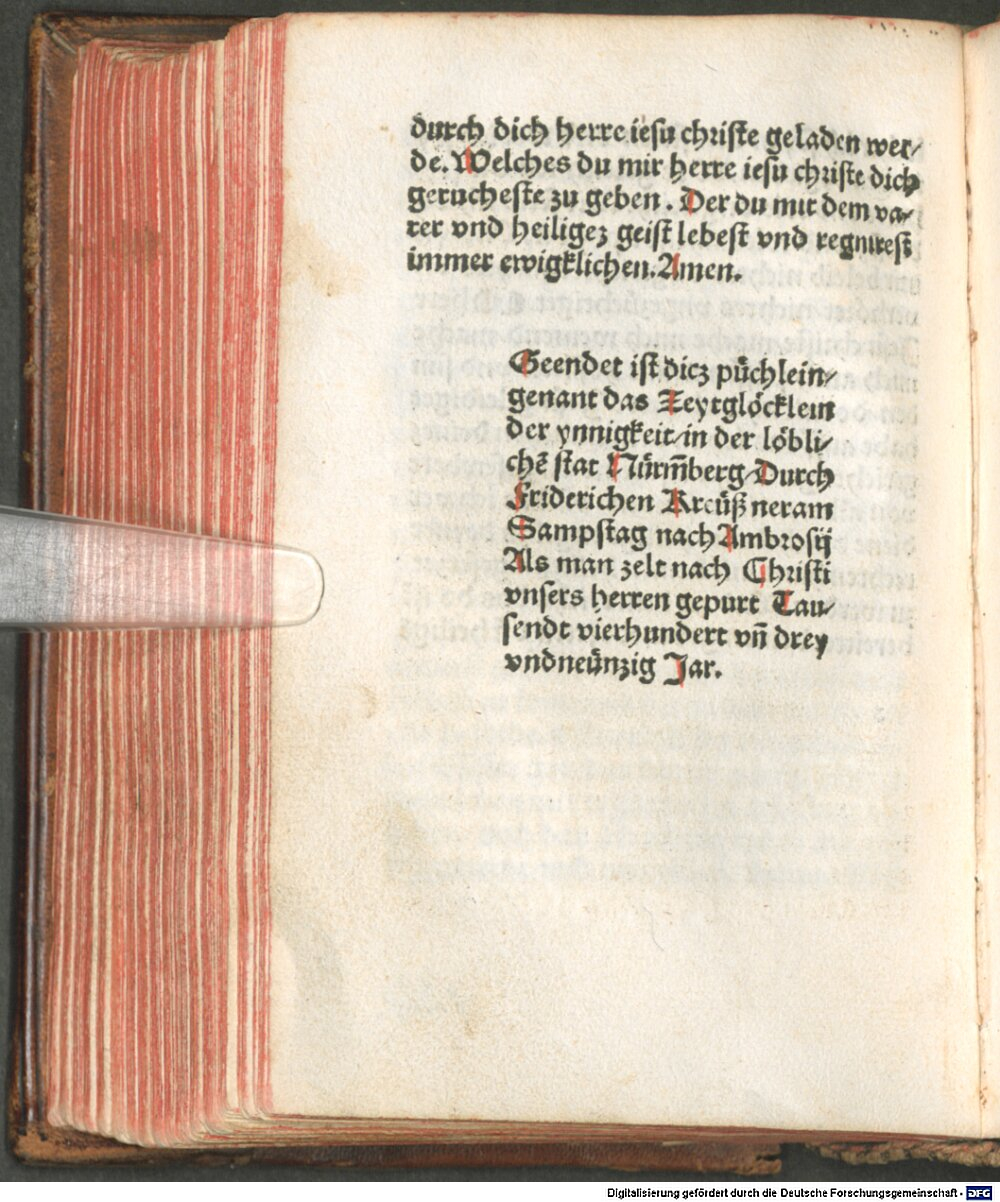 durch dich herre iesu christe geladen wer/
de. Welches du mir herre iesu christe dich
gerucheste zu geben. Der du mit dem va/
ter vnd heiligeʒ geist lebest vnd regnirest
immer ewigklichen. Amen.
Geendet ist dicʒ püchlein/
genant das Zeytglöcklein
der ynnigkeit/in der löbli/
chē stat Nürm̄berg/Durch
Friderichen Kreüßner am
Sampstag nach Ambrosij
Als man zelt nach Christi
vnsers herren gepurt Tau/
sendt vierhundert vn̄ drey
vndneünzig Jar.
Digitalisierung gefördert durch die Deutsche Forschungsgemeinschaft - DFG